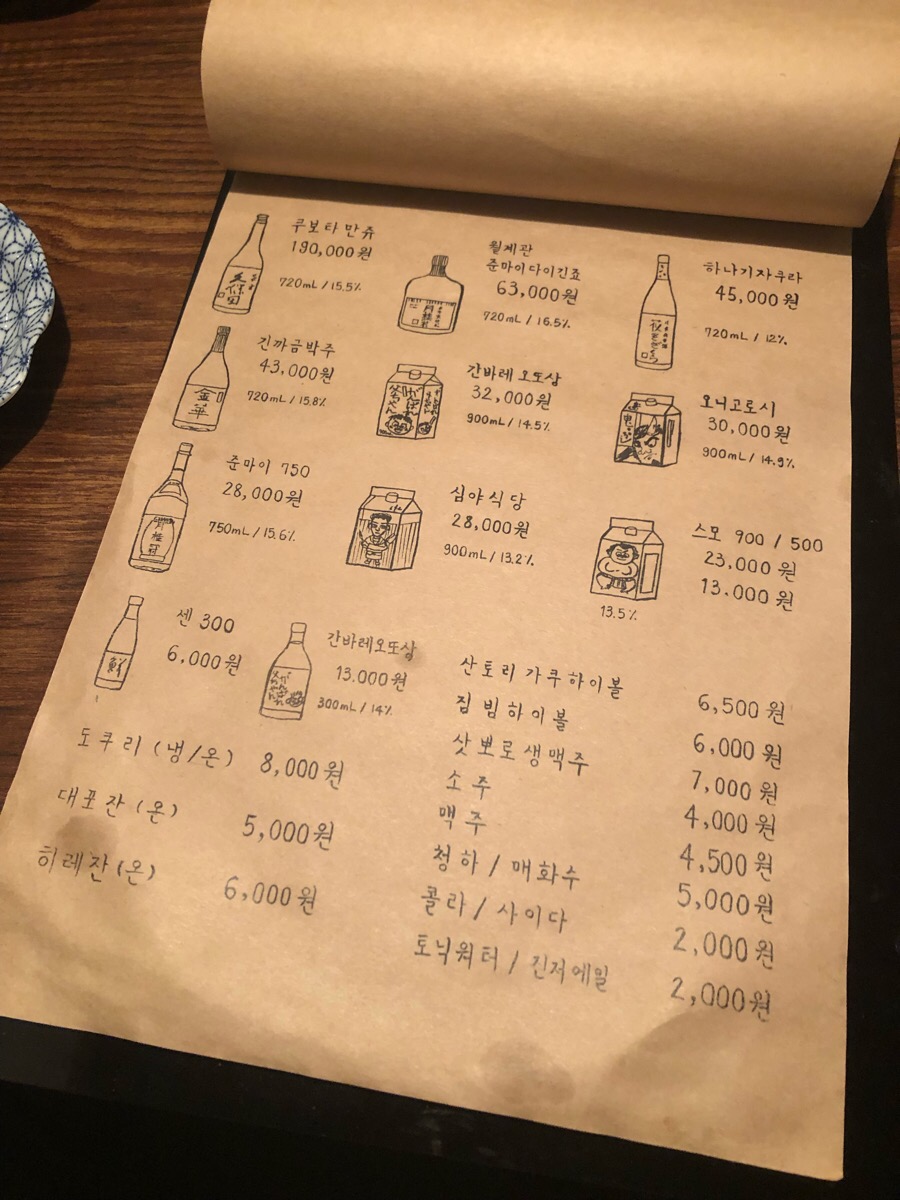 쿠보타만쥬
190,000원
720mL / 15.5%
월계관
준마이다이긴죠
63,000원
720mL / 16.5%
하나기자쿠라
45,000원
720mL / 12%
긴까금박주
43,000원
720mL / 15.8%
간바레 오또상
32,000원
900mL / 14.5%
오니고로시
30,000원
900mL / 14.9%
준마이 750
28,000원
750mL / 15.6%
심야식당
28,000원
900mL / 13.2%
스모 900 / 500
23,000원
13.000원
13.5%
센 300
6.000원
간바레오또상
13.000원
300mL / 14%
도쿠리 (냉/온) 8,000원
대포잔 (온) 5,000원
히레잔 (온) 6,000원
산토리 가쿠하이볼 6,500원
짐빔하이볼 6,000원
삿뽀로생맥주 7,000원
소주 4,000원
맥주 4,500원
청하 / 매화수 5,000원
콜라 / 사이다 2,000원
토닉워터 / 진저에일 2,000원
久保田
金華
月桂冠
鮮